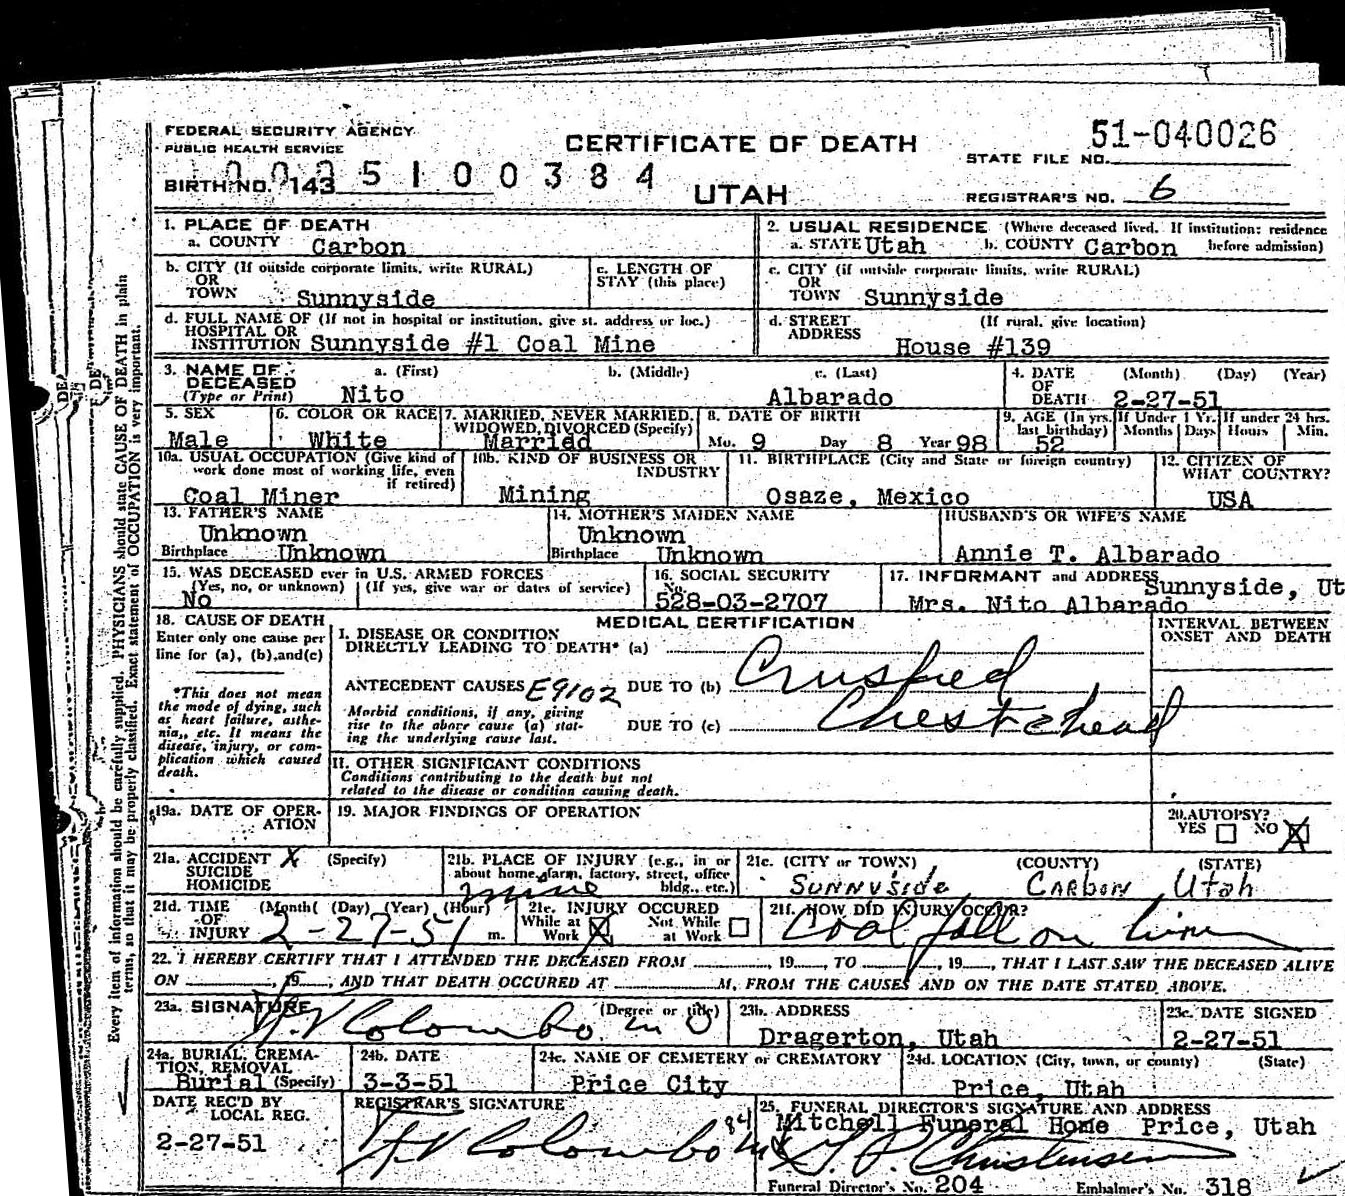 FEDERAL SECURITY AGENCY
PUBLIC HEALTH SERVICE
CERTIFICATE OF DEATH
51-040026
STATE FILE NO.
BIRTH NO. 143 5100384
UTAH
REGISTRAR'S NO. 6
1. PLACE OF DEATH
a. COUNTY Carbon
2. USUAL RESIDENCE (Where deceased lived. If institution: residence before admission)
a. STATE Utah b. COUNTY Carbon
b. CITY (If outside corporate limits, write RURAL)
OR
TOWN Sunnyside
c. LENGTH OF
STAY (this place)
c. CITY (if outside corporate limits, write RURAL)
OR
TOWN Sunnyside
d. FULL NAME OF (If not in hospital or institution, give st. address or loc.)
HOSPITAL OR
INSTITUTION Sunnyside #1 Coal Mine
d. STREET (If rural, give location)
ADDRESS
House #139
3. NAME OF a. (First) b. (Middle) c. (Last)
DECEASED
(Type or Print) Nito Albarado
4. DATE (Month) (Day) (Year)
OF
DEATH 2-27-51
5. SEX
Male
6. COLOR OR RACE
White
7. MARRIED, NEVER MARRIED,
WIDOWED, DIVORCED (Specify)
Married
8. DATE OF BIRTH
Mo. 9 Day 8 Year 98
9. AGE (In yrs. last birthday)
52
If Under 1 Yr.
Months Days
If under 24 hrs.
Hours Min.
10a. USUAL OCCUPATION (Give kind of
work done most of working life, even
if retired)
Coal Miner
10b. KIND OF BUSINESS OR
INDUSTRY
Mining
11. BIRTHPLACE (City and State or foreign country)
Osaze, Mexico
12. CITIZEN OF
WHAT COUNTRY?
USA
13. FATHER'S NAME
Unknown
Birthplace Unknown
14. MOTHER'S MAIDEN NAME
Unknown
Birthplace Unknown
HUSBAND'S OR WIFE'S NAME
Annie T. Albarado
15. WAS DECEASED ever in U.S. ARMED FORCES
(Yes, no, or unknown) (If yes, give war or dates of service)
No
16. SOCIAL SECURITY
No.
528-03-2707
17. INFORMANT and ADDRESS Sunnyside, Ut
Mrs. Nito Albarado
18. CAUSE OF DEATH
Enter only one cause per
line for (a), (b), and (c)
*This does not mean
the mode of dying, such
as heart failure, asthe-
nia, etc. It means the
disease, injury, or com-
plication which caused
death.
MEDICAL CERTIFICATION
INTERVAL BETWEEN
ONSET AND DEATH
I. DISEASE OR CONDITION
DIRECTLY LEADING TO DEATH* (a)
ANTECEDENT CAUSES E9102 DUE TO (b) Crushed
Morbid conditions, if any, giving
rise to the above cause (a) stat-
ing the underlying cause last.
DUE TO (c) Chest & head
II. OTHER SIGNIFICANT CONDITIONS
Conditions contributing to the death but not
related to the disease or condition causing death.
19a. DATE OF OPER-
ATION
19. MAJOR FINDINGS OF OPERATION
20. AUTOPSY?
YES NO X
21a. ACCIDENT X (Specify)
SUICIDE
HOMICIDE
21b. PLACE OF INJURY (e.g., in or
about home, farm, factory, street, office
bldg., etc.)
mine
21c. (CITY or TOWN) (COUNTY) (STATE)
Sunnyside Carbon Utah
21d. TIME (Month) (Day) (Year) (Hour)
OF
INJURY 2-27-51 m.
21e. INJURY OCCURED
While at Work X Not While at Work
21f. HOW DID INJURY OCCUR?
Coal fall on him
22. I HEREBY CERTIFY THAT I ATTENDED THE DECEASED FROM , 19 , TO , 19 , THAT I LAST SAW THE DECEASED ALIVE
ON , 19 , AND THAT DEATH OCCURED AT M, FROM THE CAUSES AND ON THE DATE STATED ABOVE.
23a. SIGNATURE (Degree or title)
Colombo MD
23b. ADDRESS
Dragerton, Utah
23c. DATE SIGNED
2-27-51
24a. BURIAL, CREMA-
TION, REMOVAL
Burial (Specify)
24b. DATE
3-3-51
24c. NAME OF CEMETERY or CREMATORY
Price City
24d. LOCATION (City, town, or county) (State)
Price, Utah
DATE REC'D BY
LOCAL REG.
2-27-51
REGISTRAR'S SIGNATURE
Colombo
25. FUNERAL DIRECTOR'S SIGNATURE AND ADDRESS
Mitchell Funeral Home Price, Utah
Christensen
Funeral Director's No. 204 Embalmer's No. 318
Every item of information should be carefully supplied. PHYSICIANS should state CAUSE OF DEATH in plain
terms, so that it may be properly classified. Exact statement of OCCUPATION is very important.